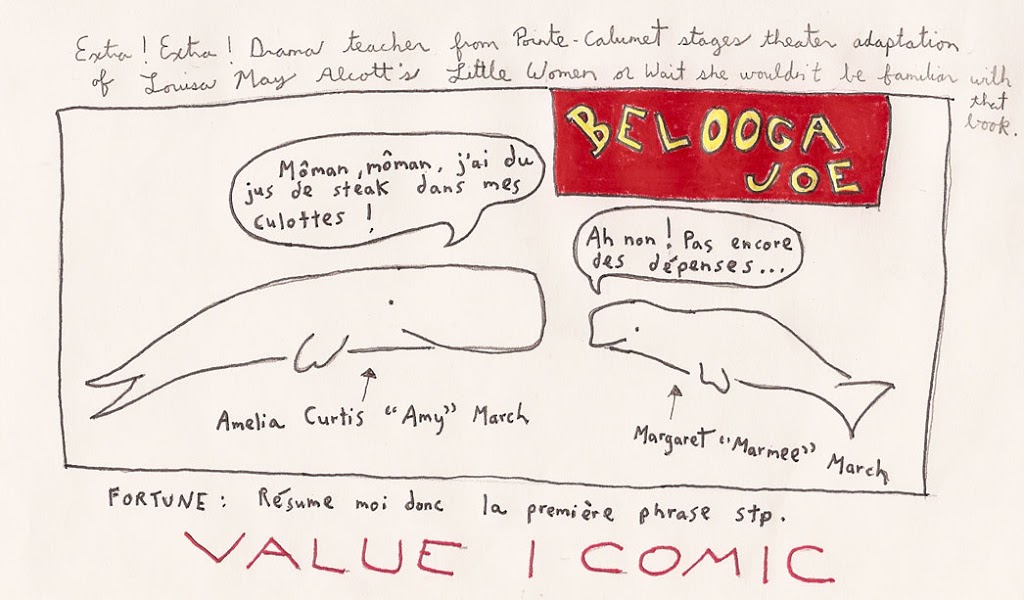 Extra! Extra! Drama teacher from Pointe-Calumet stages theater adaptation
of Louisa May Alcott's Little Women or Wait she wouldn't be familiar with
that
book.
BELOOGA
JOE
Môman, môman, j'ai du
jus de steak dans mes
culottes !
Ah non ! Pas encore
des dépenses...
Amelia Curtis "Amy" March
Margaret "Marmee" March
FORTUNE : Résume moi donc la première phrase stp.
VALUE | COMIC